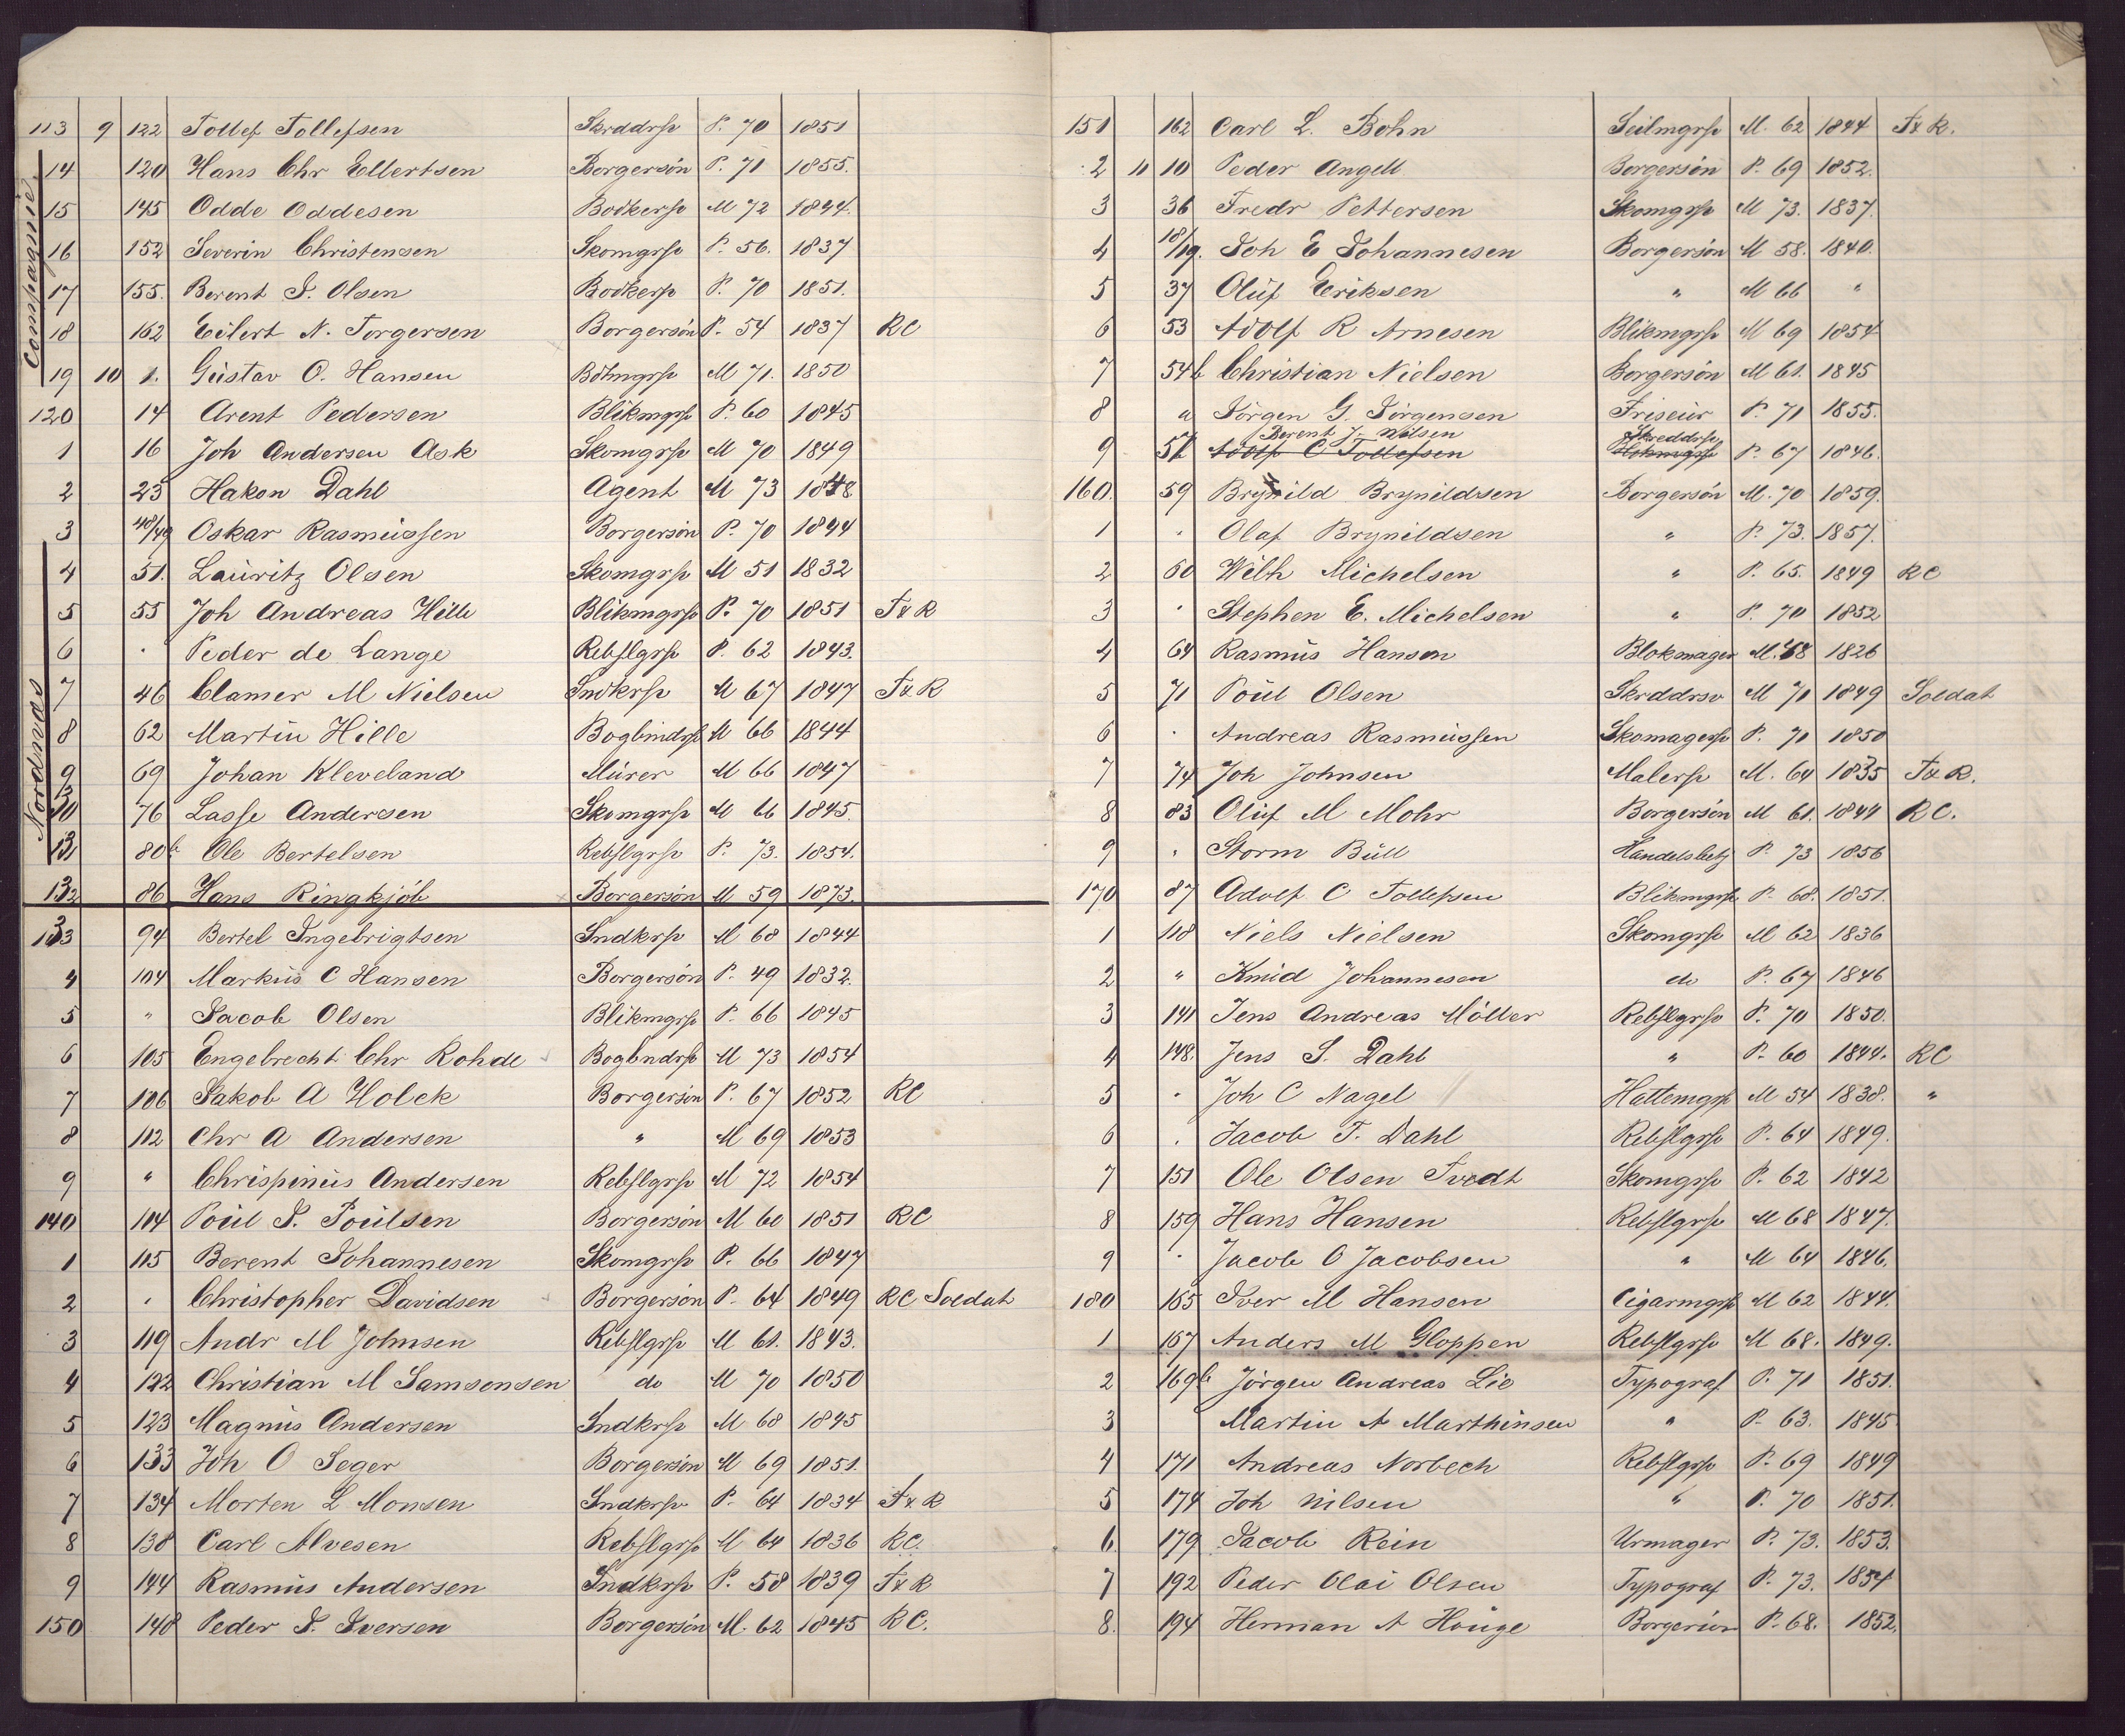 113 9 122 Tollef Tollefsen Skrddrsv P. 70 1851
14 120 Hans Chr Ellertsen Borgersön P. 71 1855.
15 145 Odde Oddesen Bodkersv M 72 1844.
16 152 Severin Christensen Skomgrsv P. 56. 1837
17 155. Berent J. Olsen Bodkersv P. 70 1851.
18 162 Eilert N. Torgersen Borgersön P. 54 1837 RC
19 10 1. Güstav O. Hansen Bötmgrsv M 71. 1850
120 14 Arent Pedersen Blikmgrsv P. 60 1845
1 16 Joh Andersen Ask Skomgrsv M 70 1849
2 23 Hakon Dahl Agent M 73 1848
3 48/49 Oskar Rasmüssen Borgersön P. 70 1844
4 51. Laüritz Olsen Skomgrsv M 51 1832
5 55 Joh Andreas Hille Blikmgrsv P. 70 1851 F&R
6 . Peder de Lange Rebslgrsv P. 62 1843.
7 46 Clamer M Nielsen Sndkrsv M 67 1847 F&R
8 62 Martin Hille Bogbindrsv M 66 1844
9 69 Johan Kleveland Mürer M 66 1847
30 76 Lasse Andersen Skomgrsv M 66 1845.
131 80b Ole Bertelsen Rebslgrsv P. 73. 1854.
132 86 Hans Ringkjöb Borgersön M 59 1873.
133 94 Bertel Ingebrigtsen Sndkrsv M 68 1844
4 104 Marküs C Hansen Borgersön P. 49 1832.
5 " Jacob Olsen Blikmgrsv P. 66 1845
6 105 Engebrecht Chr Rohde Bogbndrsv M 73 1854
7 106 Jakob A Holck Borgersön P. 67 1852 RC
8 112 Chr A Andersen " M 69 1853
9 " Chrispinüs Andersen Rebslgrsv M 72 1854
140 114 Poül J. Poülsen Borgersön M 60 1851 RC
1 115 Berent Johannesen Skomgrsv P. 66 1847
2 . Christopher Davidsen Borgersön P. 64 1849 RC Soldat
3 119 Andr M Johnsen Rebslgrsv M 61. 1843.
4 122 Christian M Samsonsen do M 70 1850
5 123 Magnüs Andersen Sndkrsv M 68 1845
6 133 Joh O Seger Borgersön M 69 1851.
7 134 Morten L Monsen Sndkrsv P. 64 1834 F&R
8 138 Carl Alvesen Rebslgrsv M 64 1836 RC.
9 144 Rasmüs Andersen Sndkrsv P. 58 1839 F&R
150 148 Peder J. Iversen Borgersön M. 62 1845 RC.
Compagnie
Nordnæs
151 162 Carl L. Bohn Seilmgrsv M. 62 1844 F&R.
2 11 10 Peder Angell Borgersön P. 69 1852.
3 36 Fredr Pettersen Skomgrsv M 73. 1837.
4 18/19. Joh E Johannesen Borgersön M 58. 1840.
5 37 Olüf Eriksen " M 66 "
6 53 Adolf R Arnesen Blikmgrsv M 69 1854
7 54b Christian Nielsen Borgersön M 61. 1845
8 a Jörgen G. Jörgensen Friseür P. 71 1855.
Berent J. Nilsen Skreddrsv
9 57 Adolf C Tollefsen P. 67 1846.
160. 59 Brynild Brynildsen Borgersön M. 70 1859.
1 . Olaf Brynildsen " P. 73. 1857.
2 60 Wilh Michelsen " P. 65. 1849 RC
3 . Stephen E. Michelsen " P. 70 1852
4 64 Rasmüs Hansen Blokmager M. 58 1826
5 71 Poül Olsen Skrddrsv M 71 1849 Soldat
6 . Andreas Rasmüssen Skomagersv P. 71 1850
7 74 Joh Johnsen Malersv M. 64 1835 F&R.
8 83 Olüf M Mohr Borgersön M 61. 1844 RC.
9 . Storm Büll Handelsbetj P. 73 1856
170 87 Adolf C Tollefsen Blikmgrsv P. 68. 1851.
1 118 Niels Nielsen Skomgrsv M 62 1836
2 " Knüd Johannesen do P. 67 1846
3 141 Jens Andreas Möller Rebslgrsv P. 70 1850.
4 148. Jens S. Dahl " P. 60 1844. RC
5 . Joh C Nagel Hattemgrsv M 54 1838. "
6 . Jacob T. Dahl Rebslgrsv P. 64 1849.
7 151 Ole Olsen Tvedt Skomgrsv P. 62 1842
8 159 Hans Hansen Rebslgrsv M 68 1847.
9 . Jacob O Jacobsen " M 64 1846.
180 165 Iver M Hansen Cigarmgrsv M 62 1844.
1 167 Anders M Gloppen Rebslgrsv M 68. 1849.
2 169b Jörgen Andreas Lie Typograf P. 71 1851.
3 Martin A Marthinsen " P. 63. 1845
4 171 Andreas Norbech Rebslgrsv P. 69 1849
5 174 Joh Nilsen " P. 70 1851.
6 179 Jacob Rein Urmager P. 73. 1853.
7 192 Peder Olai Olsen Typograf P. 73. 1854
8. 194 Herman A Haüge Borgersön P. 68. 1852.